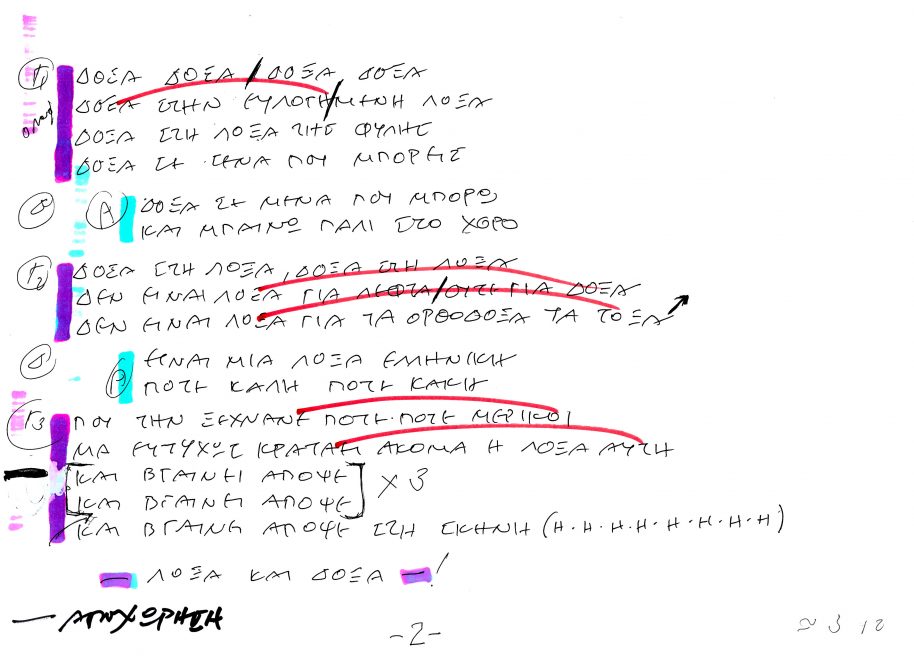 Γ1 ΔΟΞΑ ΔΟΞΑ / ΔΟΞΑ ΔΟΞΑ
ΔΟΞΑ ΣΤΗΝ ΕΥΛΟΓΗ/ΜΕΝΗ ΛΟΞΑ
ΔΟΞΑ ΣΤΗ ΛΟΞΑ ΤΗΣ ΦΥΛΗΣ
ΔΟΞΑ ΣΕ ΣΕΝΑ ΠΟΥ ΜΠΟΡΕΙΣ
Α ΔΟΞΑ ΣΕ ΜΕΝΑ ΠΟΥ ΜΠΟΡΩ
ΚΑΙ ΜΠΑΙΝΩ ΠΑΛΙ ΣΤΟ ΧΟΡΟ
Γ2 ΔΟΞΑ ΣΤΗ ΛΟΞΑ, ΔΟΞΑ ΣΤΗ ΛΟΞΑ
ΔΕΝ ΕΙΝΑΙ ΛΟΞΑ ΓΙΑ ΛΕΦΤΑ/ΟΥΤΕ ΓΙΑ ΔΟΞΑ
ΔΕΝ ΕΙΝΑΙ ΛΟΞΑ ΓΙΑ ΤΑ ΟΡΘΟΔΟΞΑ ΤΑ ΤΟΞΑ
ΕΙΝΑΙ ΜΙΑ ΛΟΞΑ ΕΛΛΗΝΙΚΗ
ΠΟΤΕ ΚΑΛΗ ΠΟΤΕ ΚΑΚΗ
Γ3 ΠΟΥ ΤΗΝ ΞΕΧΝΑΝΕ ΠΟΤΕ-ΠΟΤΕ ΜΕΡΙΚΟΙ
ΜΑ ΕΥΤΥΧΩΣ ΚΡΑΤΑΕΙ ΑΚΟΜΑ Η ΛΟΞΑ ΑΥΤΗ
[ΚΑΙ ΒΓΑΙΝΕΙ ΑΠΟΨΕ
ΚΑΙ ΒΓΑΙΝΕΙ ΑΠΟΨΕ] X 3
ΚΑΙ ΒΓΑΙΝΕΙ ΑΠΟΨΕ ΣΤΗ ΣΚΗΝΗ (Η-Η-Η-Η-Η-Η-Η-Η)
— ΛΟΞΑ ΚΑΙ ΔΟΞΑ — !
— ΑΠΟΧΩΡΗΣΗ
-2-